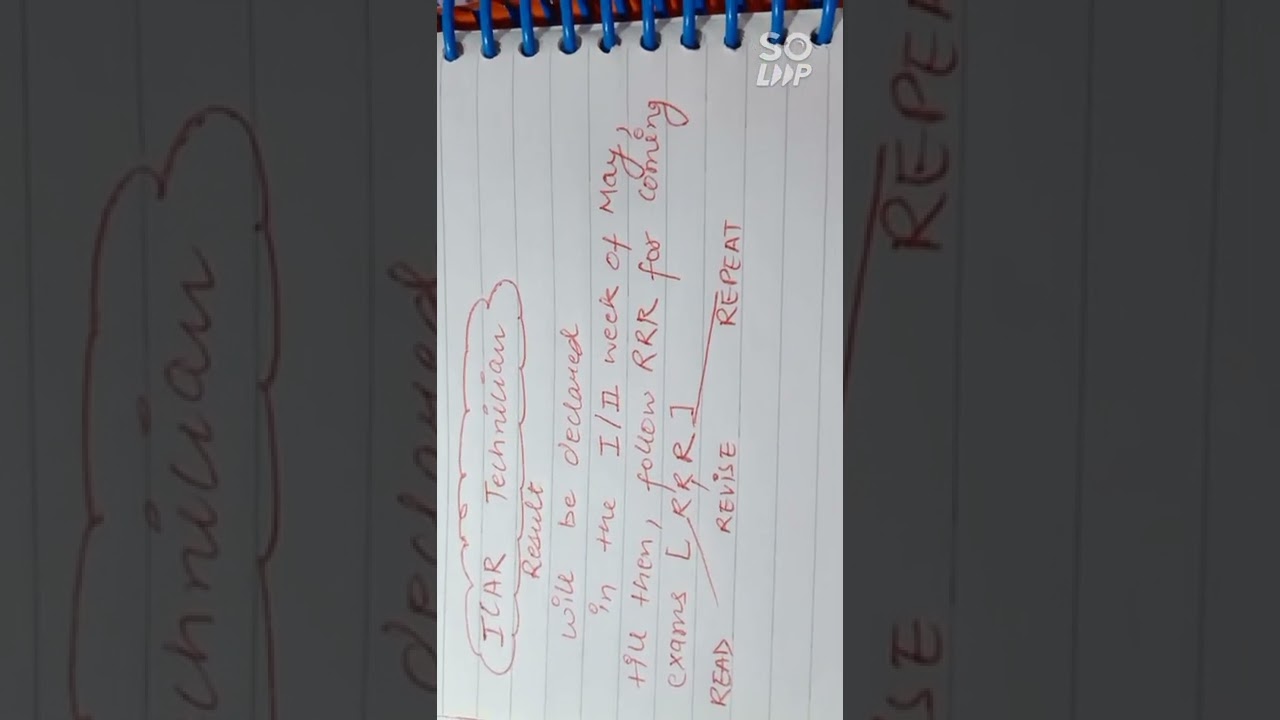 ICAR Technician
Result
will be declared
in the I/II week of May,
till then, follow RRR for coming
exams [RRR]
READ REVISE REPEAT
SO
LOOP